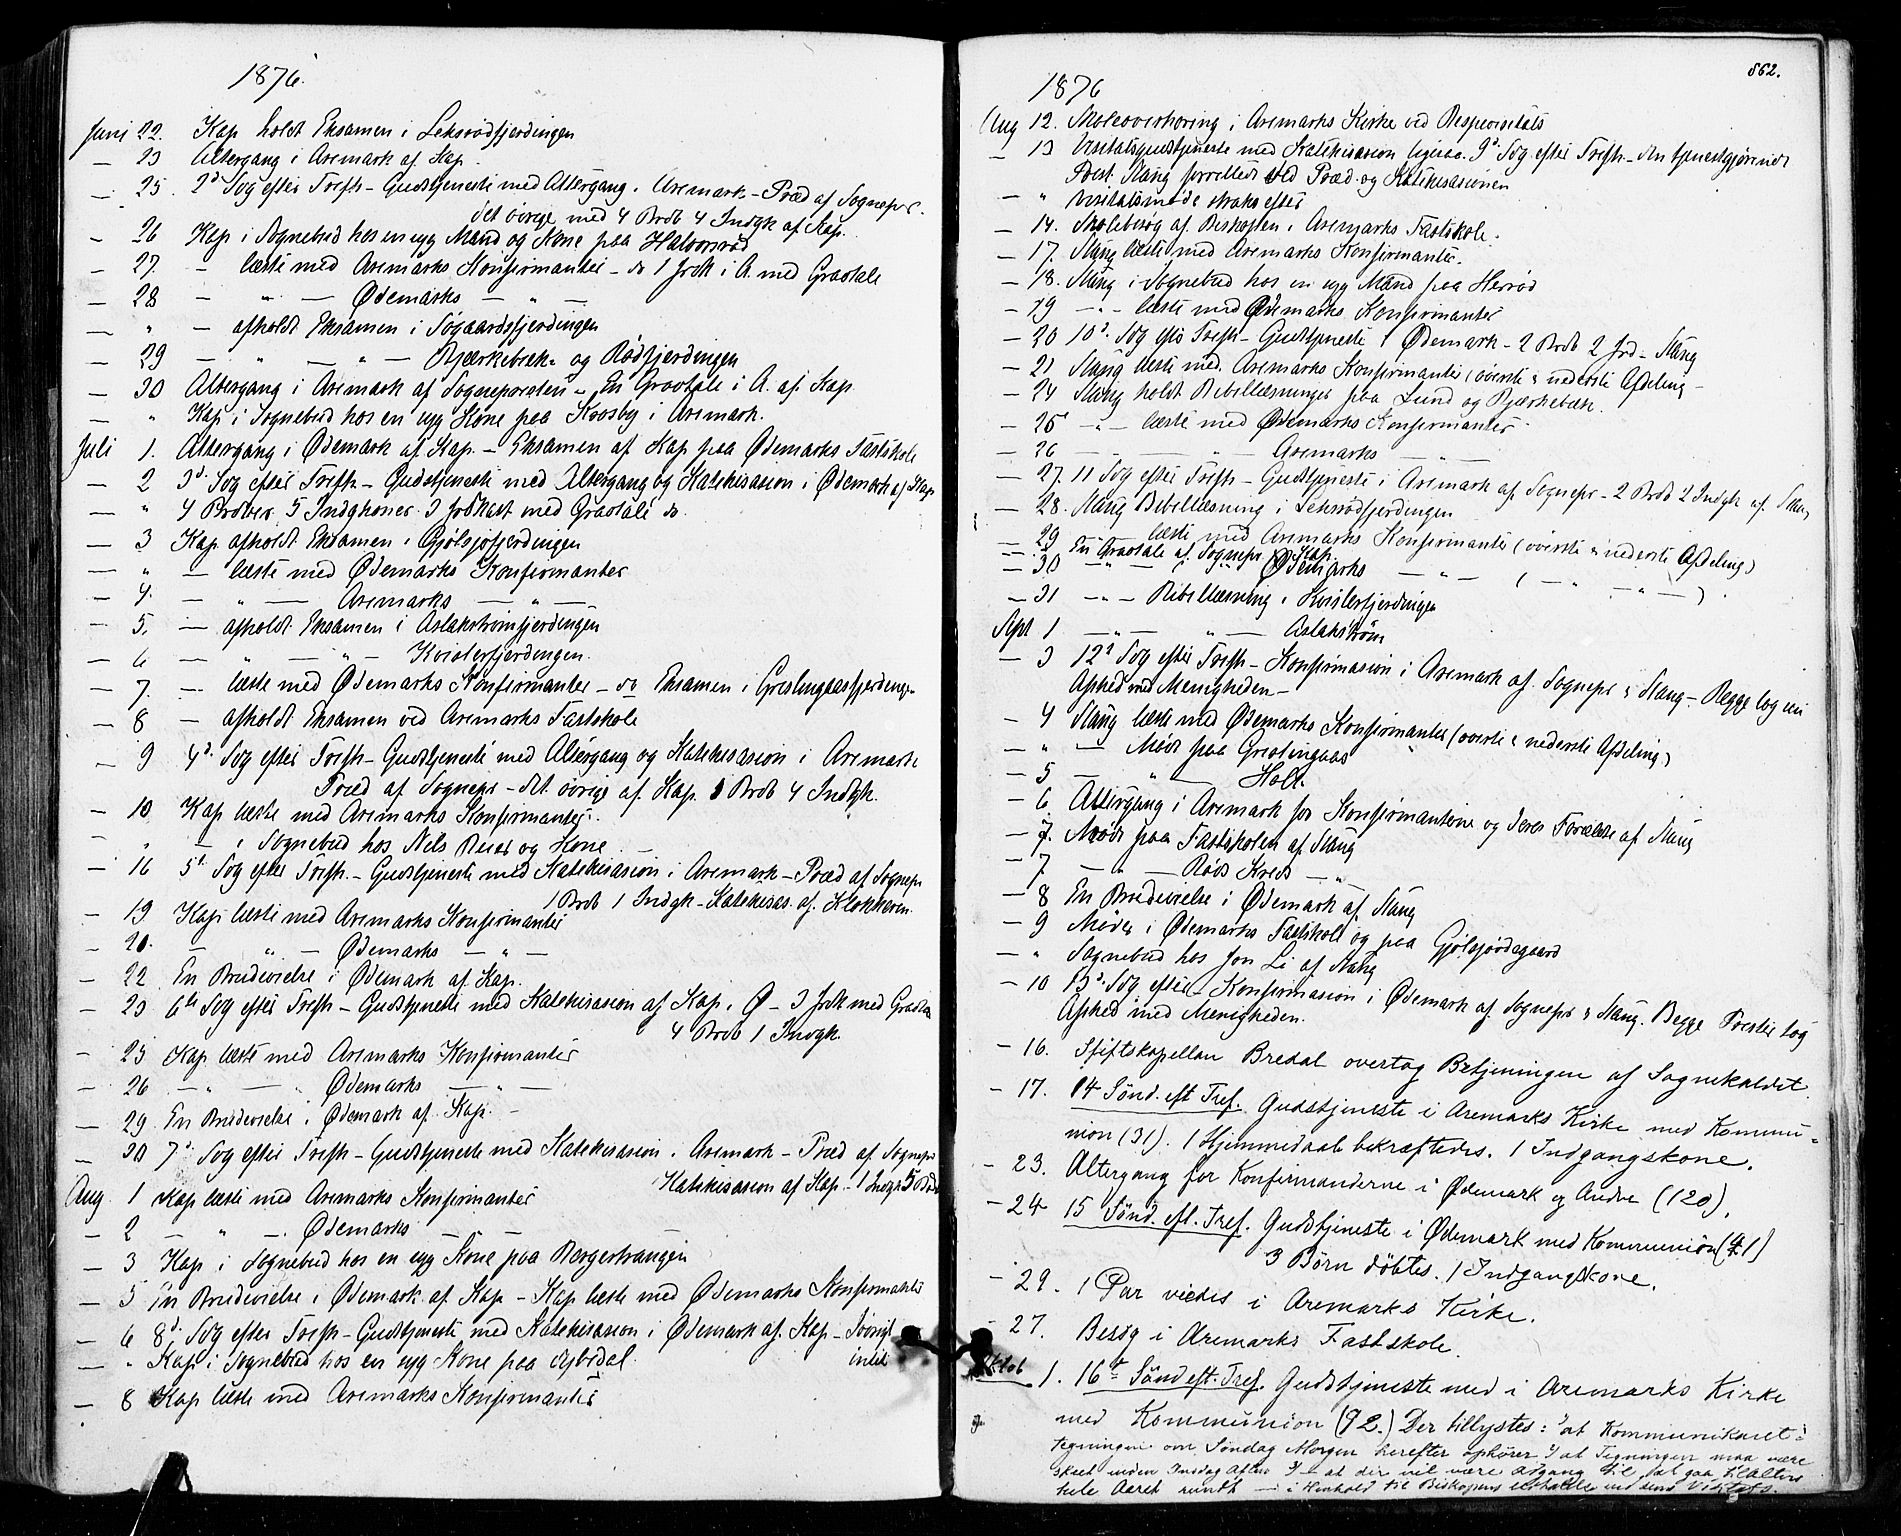 1876.
Juni 22. Kap holdt Eksamen i Leksrødfjerdingen
— 23 Altergang i Aremark af Kap.
— 25. 2d Søg efter Trefh – Gudstjeneste med Altergang i Aremark – Præd af Sognepr.
det øvrige med 4 Brdb 4 Indgk af Kap.
— 26 Kap i Sognebud hos en syg Mand og Kone paa Halvorsrød
— 27. – læste med Aremarks Konfirmanter – do 1 Jrdk i A. med Gravtale
— 28 – " — Ødemarks — " —
— " – afholdt Eksamen i Søgaardsfjerdingen
— 29 — " — " — Bjærkebæk og Rødfjerdingen
— 30 Altergang i Aremark af Sognepræsten – En Gravtale i A. af Kap
— " Kap i Sognebud hos en syg Kone paa Krosby i Aremark.
Juli 1. Altergang i Ødemark af Kap. – Eksamen af Kap paa Ødemarks Fastskole
— 2 3d Søg efter Trefh – Gudstjeneste med Altergang og Katekisasion i Ødemark af Kap
— " 4 Brdber 5 Indgkoner 3 Jrdkast med Gravtale do.
— 3 Kap afholdt Eksamen i Gjølsjøfjerdingen
— " — læste med Ødemarks Konfirmanter
— 4. — " — Aremarks — " —
— 5. — afholdt Eksamen i Aslakstrømfjerdingen
— 6 — " — " — Kvislerfjerdingen.
— 7. — læste med Ødemarks Konfirmanter – do Eksamen i Greslingaasfjerdingen
— 8 — afholdt Eksamen ved Aremarks Fastskole
— 9 4d Søg efter Trefh – Gudstjeneste med Altergang og Katekisasion i Aremark
Præd af Sognepr – det øvrige af Kap. 3 Brdb 4 Indgk.
— 10 Kap læste med Aremarks Konfirmanter.
" — i Sognebud hos Nels Beier og Kone
— 16 5t Søg efter Trefh. – Gudstjeneste med Katekisasion i Aremark – Præd af Sognepr
1 Brdb 1 Indgk – Katekisas. af Klokkeren.
— 19 Kap læste med Aremarks Konfirmanter
— 20. — " — Ødemarks — " —
— 22 En Brudevielse i Ødemark af Kap.
— 23 6te Søg efter Trefh – Gudstjeneste med Katekisasion af Kap. i Ø – 3 Jrdk med Gravtale
4 Brdb 1 Indgk.
— 25 Kap læste med Aremarks Konfirmanter
— 26 — " — Ødemarks — " —
— 29 En Brudevielse i Ødemark af Kap. –
— 30 7d Søg efter Trefh – Gudstjeneste med Katekisasion i Aremark – Præd af Sognepr
Katekisasion af Kap – 1 Indgk 5 Brdb
Aug. 1 Kap læste med Aremarks Konfirmanter
— 2 — " — Ødemarks —
— 3 Kap i Sognebud hos en syg Kone paa Bergerstrangen
— 5 En Brudevielse i Ødemark af Kap – Kap læste med Ødemarks Konfirmanter
— 6 8d Søg efter Trefh – Gudstjeneste med Katekisasion i Ødemark af Kap – Iøvrigt
intet
— " Kap i Sognebud hos en syg Kone paa Dybedal.
— 8 Kap læste med Aremarks Konfirmanter
862.
1876
Aug 12. Skoleoverhøring i Aremarks Kirke ved Bispevisitats
— 13 Visitatsgudstjeneste med Katekisasion ligesaa. 9d Søg efter Trefh – den tjenestgjørende
Prest Stang forrettede ved Præd. og Katekisasionen
— " Visitatsmøde straks efter
— 14. Skolebesøg af Biskopen i Aremarks Fastskole.
— 17. Stang læste med Aremarks Konfirmanter.
— 18. Stang i Sognebud hos en syg Mand paa Herrød
— 19 — " – læste med Ødemarks Konfirmanter
— 20 10d Søg eft Trefh – Gudstjeneste i Ødemark – 2 Brdb 2 Jrd – Stang
— 21 Stang læste med Aremarks Konfirmanter (øverste & nederste Afdeling –
— 24 Stang holdt Bibellæsninger paa Lund og Bjærkebæk.
— 25 — " – læste med Ødemarks Konfirmanter
— 26 — " — Aremarks — " —
— 27. 11 Søg efter Trefh – Gudstjeneste i Aremark af Sognepr – 2 Brdb 2 Indgk af Stang
— 28. Stang Bibellæsning i Leksrødfjerdingen
— 29 læste med Aremarks Konfirmanter (øverste & nederste Afdeling)
— " En Gravtale af Sognepr Kap.
— 30 — " — Ødemarks — " — ( — " — " — )
— 31 — " – Bibellæsning i Kvislerfjerdingen
Sept 1 — " — " — Aslakstrøm
— 3 12d Søg efter Trefh – Konfirmasion i Aremark af Sognepr & Stang – Begge tog en
Afsked med Menigheden –
— 4 Stang læste med Ødemarks Konfirmanter (øverste & nederste Afdeling)
— " — Møde paa Greslingaas
— 5 — " — Holt.
— 6 Altergang i Aremark for Konfirmanterne og deres Forældre af Stang
— 7. Møde paa Fastskolen af Stang
— 7 — " — Røds Kreds — " —
— 8 En Brudevielse i Ødemark af Stang
— 9 Møder i Ødemarks Fastskole og paa Gjølsjøødegaard
— " Sognebud hos Jon Li af Stang
— 10 13d Søg efter – Konfirmasion i Ødemark af Sognepr & Stang. Begge Prester tog
Afsked med Menigheden.
— 16. Stiftskapellan Bredal overtog Betjeningen af Sognekaldet
— 17. 14 Sønd. eft Tref. Gudstjeneste i Aremarks Kirke med Kommu-
nion (31). 1 Hjemmedaab bekræftedes. 1 Indgangskone.
— 23. Altergang for Konfirmanderne i Ødemark og Andre (120).
— 24 15 Sønd. eft. Tref. Gudstjeneste i Ødemark med Kommunion (41)
3 Børn døbtes. 1 Indgangskone.
— 29. 1 Par viedes i Aremarks Kirke.
— 27. Besøg i Aremarks Fastskole.
Oktob 1. 16t Sønd eft. Tref. Gudstjeneste med i Aremarks Kirke
med Kommunion (92.) Der tillystes: 1/ at Kommunikant-
tegningen om Søndag Morgen herefter ophører 2/ at Tegningen maa være
skeet inden Lørdag Aften 3/ – at der vil være Adgang til at gaa til Alters
hele Aaret rundt — i Henhold til Biskopens ved sin Visitats.